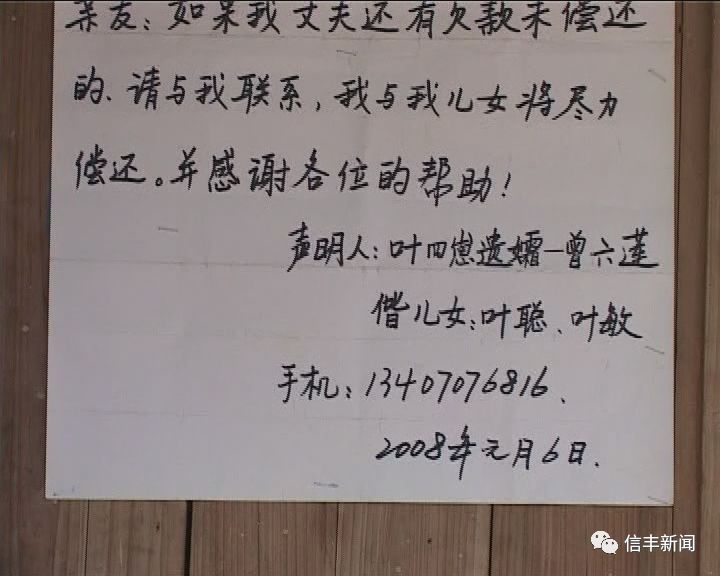 亲友：如果我丈夫还有欠款未偿还
的、请与我联系，我与我儿女将尽力
偿还。并感谢各位的帮助！
声明人：叶四崽遗孀—曾六莲
偕儿女：叶聪、叶敏
手机：13407076816、
2008年元月6日.
信丰新闻